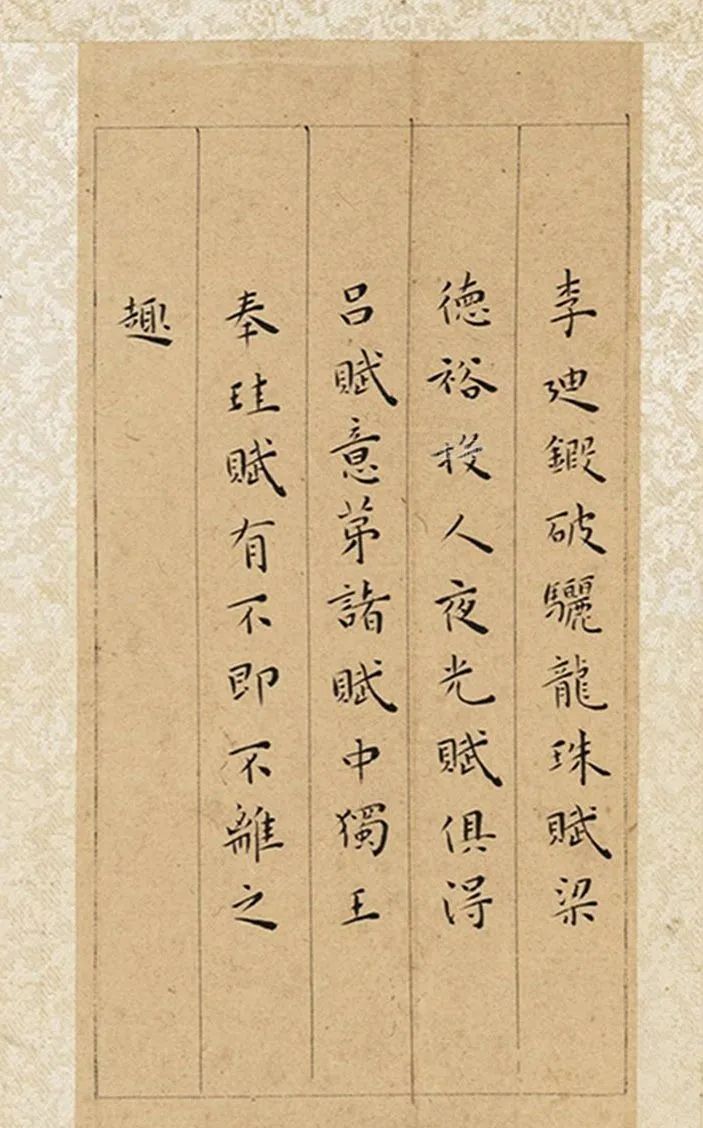 李廸鍛破驪龍珠賦梁
德裕投人夜光賦俱得
呂賦意苐諸賦中獨王
奉珪賦有不即不離之
趣